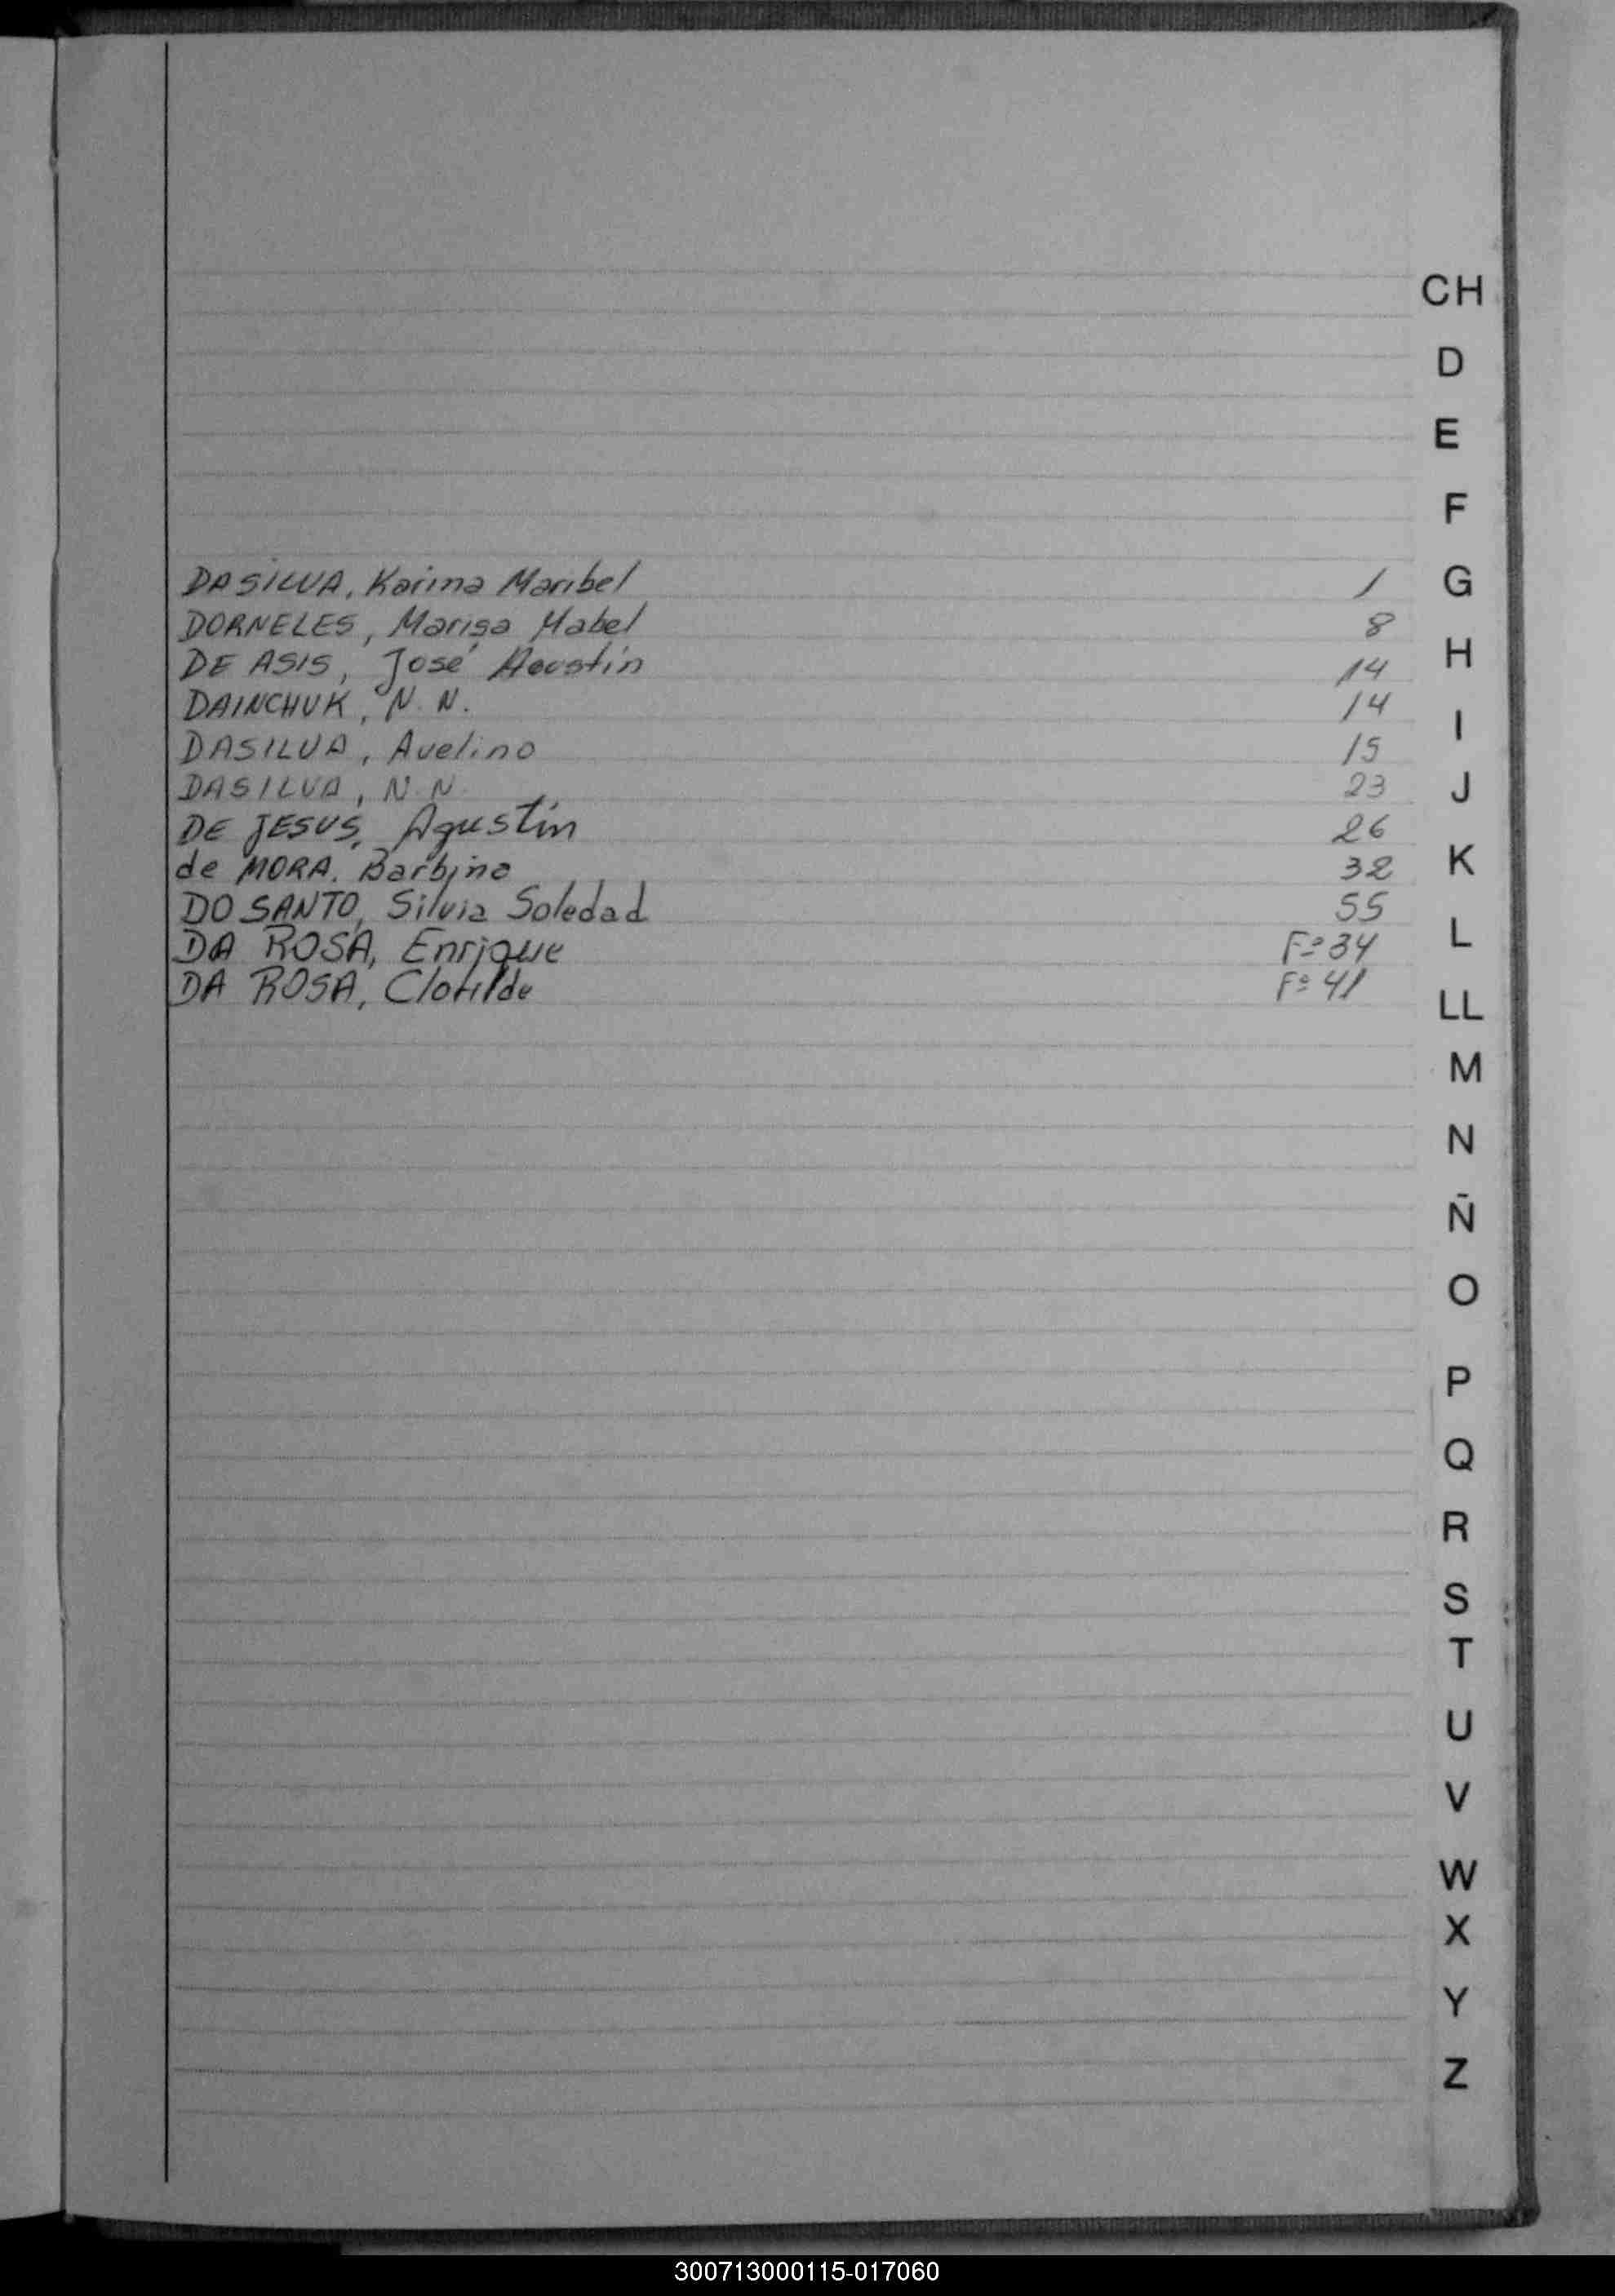 CH
D
E
F
DASILVA, Karina Maribel 1
G
DORNELES, Marisa Mabel 8
H
DE ASIS, José Agustín 14
DAINCHUK, N. N. 14
I
DASILVA, Avelino 15
DASILVA, N. N. 23
J
DE JESUS, Agustín 26
de MORA, Barbina 32
K
DO SANTO, Silvia Soledad 55
DA ROSA, Enrique Fº 34
L
DA ROSA, Clotilde Fº 41
LL
M
N
Ñ
O
P
Q
R
S
T
U
V
W
X
Y
Z
300713000115-017060